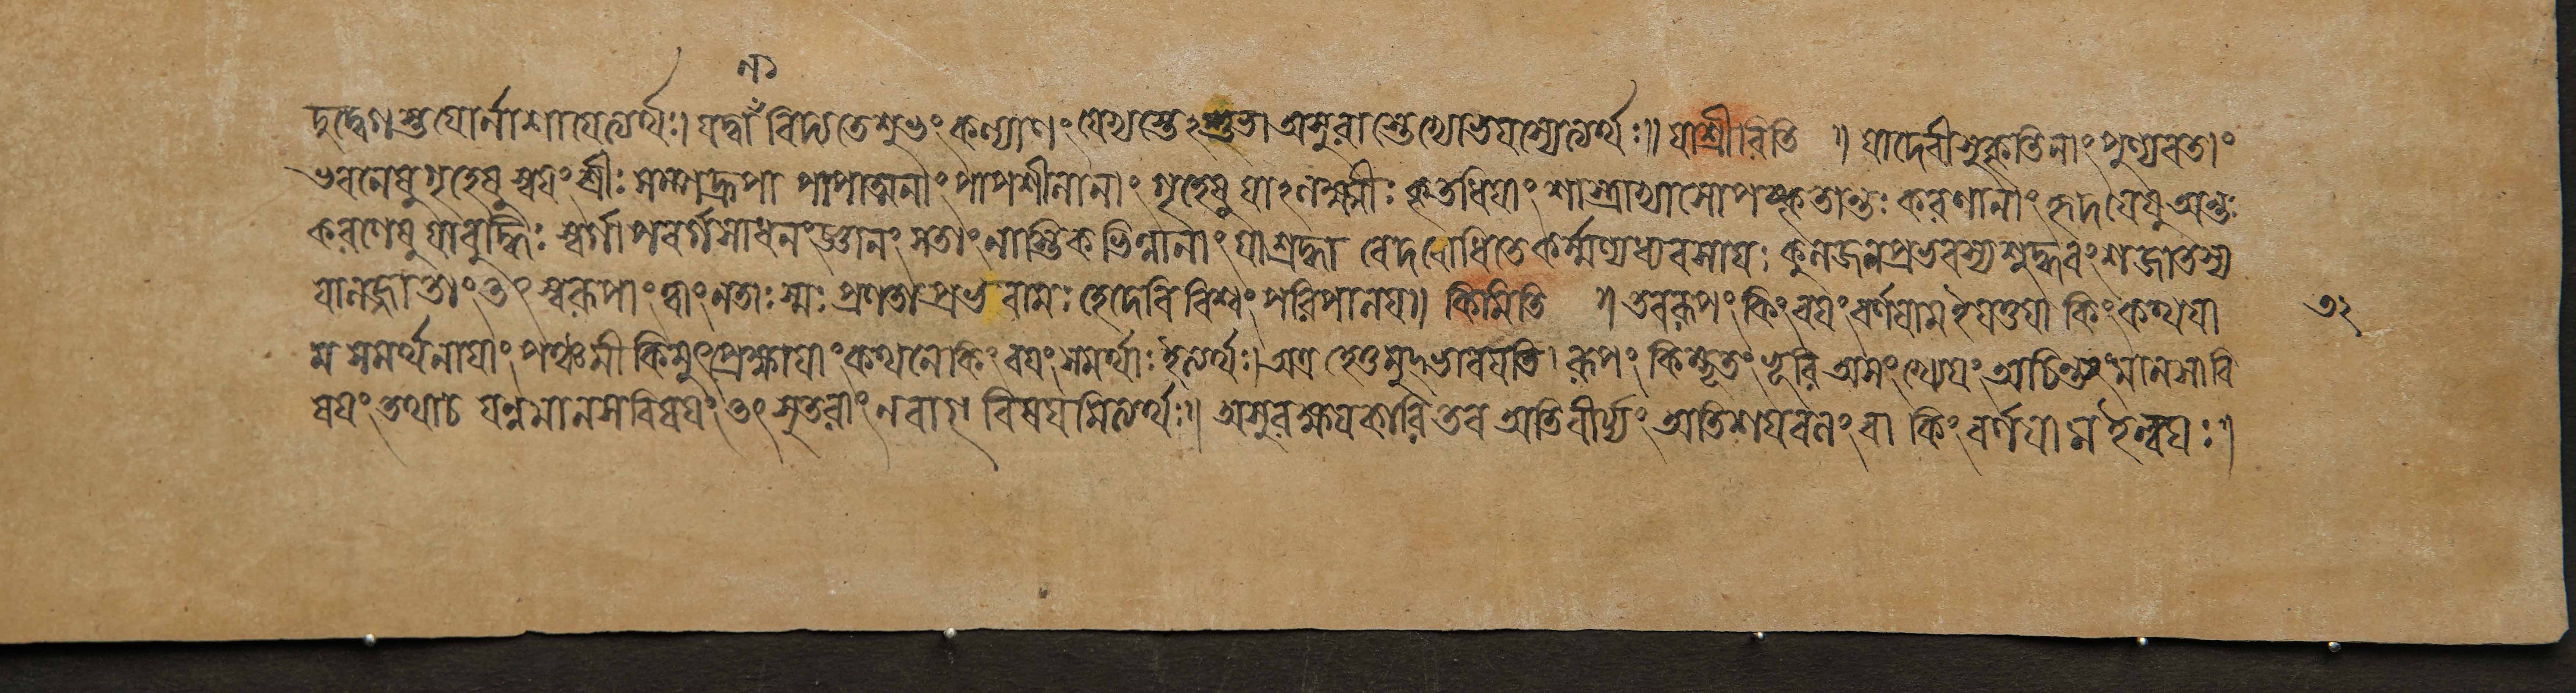 না
দুদ্বেগস্তযোর্নাশাযেত্যর্থঃ। যদ্বা বিদ্যতে শুভং কল্যাণং যেষ্বস্তেঽশুভা অসুরাস্তেভ্যো ভযস্যেত্যর্থঃ॥ যা শ্রীরিতি ॥ যা দেবী সুকৃতিনাং পুণ্যবতাং
ভবনেষু গৃহেষু স্বযং শ্রীঃ সম্পদ্রূপা পাপাত্মনাং পাপশীলানাং গৃহেষু যাঽলক্ষ্মীঃ কৃতধিযাং শাস্ত্রাভ্যাসোপস্কৃতান্তঃকরণানাং হৃদযেষু অন্তঃ
করণেষু যা বুদ্ধিঃ স্বর্গাপবর্গসাধনং জ্ঞানং সতাং নাস্তিকভিন্নানাং যা শ্রদ্ধা বেদবোধিতে কর্ম্মণ্যধ্যবসাযঃ কুলজনপ্রভবস্য শুদ্ধবংশজাতস্য
যা লজ্জা তাং তৎস্বরূপাং ত্বাং নতাঃ স্মঃ প্রণতা প্রভবামঃ হে দেবি বিশ্বং পরিপালয॥ কিমিতি ॥ তব রূপং কিং বযং বর্ণযাম ইযত্তযা কিং কথযা ৩২
ম সমর্থনাযাং পঞ্চমী কিমুৎপ্রেক্ষাযাং কথনে কিং বযং সমর্থাঃ ইত্যর্থঃ। অত্র হেতুমুদ্ভাবযতি। রূপং কিম্ভূতং ভূরি অসংখ্যেযং অচিন্ত্যং মানসাবি
ষযং তথাচ যন্ন মানসবিষযং তৎ সুতরাং ন বাগ্বিষযমিত্যর্থঃ॥ অসুরক্ষযকারি তব অতিবীর্য্যং অতিশযবলং বা কিং বর্ণযাম ইত্যন্বযঃ॥